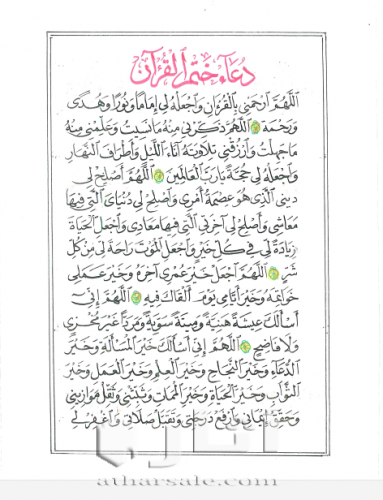 دُعَاءُ خَتْمِ الْقُرْآنِ
اَللّٰهُمَّ ارْحَمْنِي بِالْقُرْآنِ وَاجْعَلْهُ لِي إِمَامًا وَنُورًا وَهُدًى
وَرَحْمَةً اَللّٰهُمَّ ذَكِّرْنِي مِنْهُ مَا نَسِيتُ وَعَلِّمْنِي مِنْهُ
مَا جَهِلْتُ وَارْزُقْنِي تِلَاوَتَهُ آنَاءَ اللَّيْلِ وَأَطْرَافَ النَّهَارِ
وَاجْعَلْهُ لِي حُجَّةً يَا رَبَّ الْعَالَمِينَ اَللّٰهُمَّ أَصْلِحْ لِي
دِينِي الَّذِي هُوَ عِصْمَةُ أَمْرِي وَأَصْلِحْ لِي دُنْيَايَ الَّتِي فِيهَا
مَعَاشِي وَأَصْلِحْ لِي آخِرَتِي الَّتِي فِيهَا مَعَادِي وَاجْعَلِ الْحَيَاةَ
زِيَادَةً لِي فِي كُلِّ خَيْرٍ وَاجْعَلِ الْمَوْتَ رَاحَةً لِي مِنْ كُلِّ
شَرٍّ اَللّٰهُمَّ اجْعَلْ خَيْرَ عُمْرِي آخِرَهُ وَخَيْرَ عَمَلِي
خَوَاتِمَهُ وَخَيْرَ أَيَّامِي يَوْمَ أَلْقَاكَ فِيهِ اَللّٰهُمَّ إِنِّي
أَسْأَلُكَ عِيشَةً هَنِيَّةً وَمِيتَةً سَوِيَّةً وَمَرَدًّا غَيْرَ مُخْزِي
وَلَا فَاضِحٍ اَللّٰهُمَّ إِنِّي أَسْأَلُكَ خَيْرَ الْمَسْأَلَةِ وَخَيْرَ
الدُّعَاءِ وَخَيْرَ النَّجَاحِ وَخَيْرَ الْعِلْمِ وَخَيْرَ الْعَمَلِ وَخَيْرَ
الثَّوَابِ وَخَيْرَ الْحَيَاةِ وَخَيْرَ الْمَمَاتِ وَثَبِّتْنِي وَثَقِّلْ مَوَازِينِي
وَحَقِّقْ إِيمَانِي وَارْفَعْ دَرَجَتِي وَتَقَبَّلْ صَلَاتِي وَاغْفِرْ لِي
atharsale.com